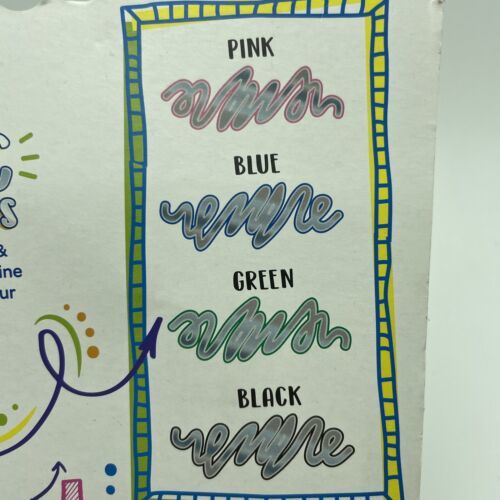 &
ine
ur
PINK
BLUE
GREEN
BLACK